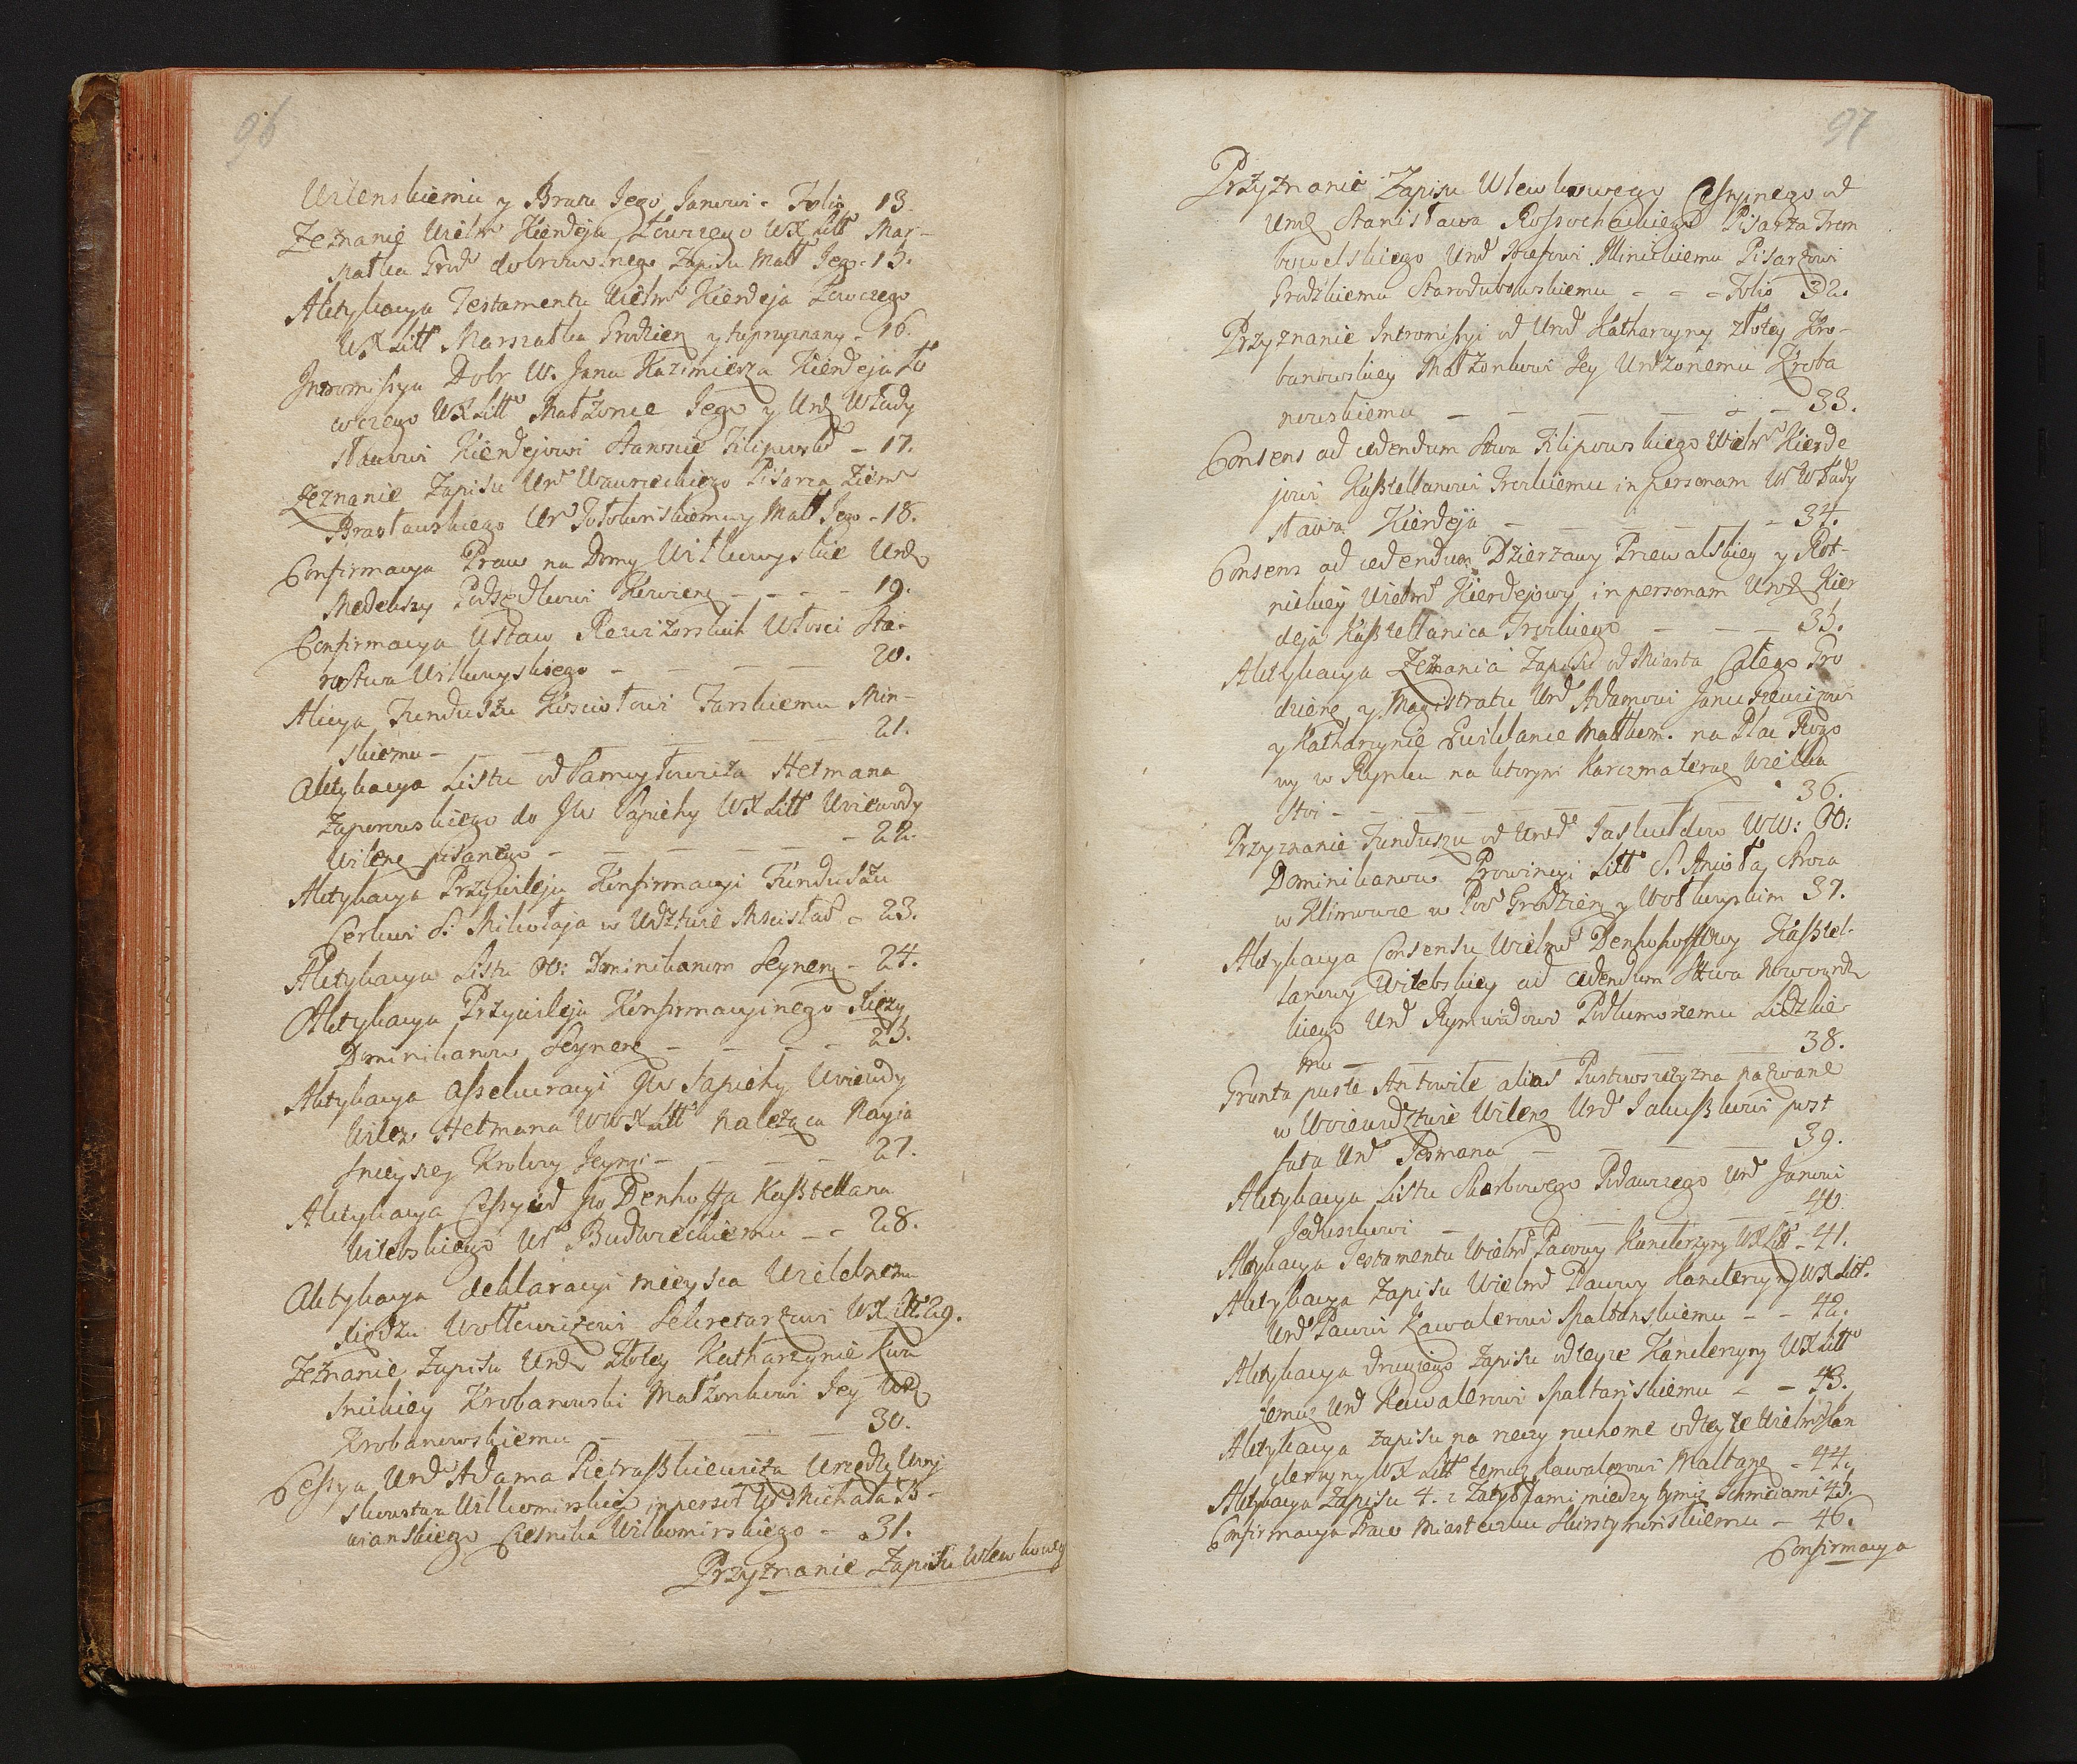 96
Wilenskiemu y Bratu Jego Janowi - Folio 13.
Zeznanie Wielm Kierdeja Łowczego WXLitt Mar-
szałka Grod dobrowolnego Zapisu Małż Jego - 15.
Aktykacya Testamentu Wielm Kierdeja Łowczego
WXLitt Marszałka Grodzien y tuprzyznany - 16.
Intromissya Dobr W. Jana Kazimierza Kierdeja Ło
wczego WXLitt Małżonce Jego y Urz Włady
sławowi Kierdejowi Staroscie Filipowsk - 17.
Zeznanie Zapisu Ur Wawrzeckiego Pisarza Ziem
Brasławskiego Ur Jołokowskiemu y Małż Jego - 18.
Confirmacya Praw na Domy Wiłkowyskie Urz
Medekszy Podsędkowi Kowien - - - - 19.
Confirmacya Ustaw Rewizorskich Włosci Sta-
rostwa Wilkowyskiego - - - - 20.
Alicya Funduszu Kosciołowi Farskiemu Min-
skiemu - - - - - - 21.
Aktykacya Listu od Samoyłowicza Hetmana
Zaporowskiego do JW Sapiehy WXLitt Woiewody
Wilen pisanego - - - - - - 22.
Aktykacya Przywileju Konfirmacyi Funduszu
Cerkwi S. Mikołaja w Wdztwie Mscisław - 23.
Aktykacya Listu OO: Dominikanom Seynen - 24.
Aktykacya Przywileju Konfirmacyinego Xięży
Dominikanow Seynen - - - - 25.
Aktykacya Assekuracyi JW Sapiehy Woiewody
Wilen Hetmana WWXLitt należąca Nayja
snieyszey Krolowy Jeymci - - - - 27.
Aktykacya Cessyi od JW Denhoffa Kasztellana
Witebskiego W Budwieckiemu - - 28.
Aktykacya deklaracyi mieysca Wielebnemu
Xiędzu Wołłowiczowi Sekretarzowi WXLitt. 29.
Zeznanie Zapisu Urz Złotey Katharzynie Kwa
snickiey Krobanowski Małżonkowi Jey Urz
Krobanowskiemu - - - - 30.
Cessya Urd Adama Pietraszkiewicza Urzędu Woy
skowstwa Wiłkomirskieg in persoł W Michała Jo-
wianskiego Czesnika Wiłkomirskiego - 31.
Przyznanie Zapisu Wlewkoweg
97
Przyznanie Zapisu Wlewkowego Cessyinego od
Urod Stanisława Rossochackiego Pisarza Trem
bowelskiego Urd Jozefowi Klinickiemu Pisarzowi
Grodzkiemu Starodubowskiemu - - - Folio 32.
Przyznanie Intromissyi od Urod Katharzyny złotey Kro-
banowskiey Małżonkowi Jey Urodzonemu Kroba
nowskiemu - - - - - - 33.
Consens ad cedendum Stwa Filipowskiego Wielm Kierde
jowi Kasztellanowi Trockiemu in personam W Włady
sława Kierdeja - - - - - 34.
Consens ad cedendum Dzierzawy Przewalskiey y Rot-
nickiey Wielm Kierdejowy in personam Urod Kier
deja Kasztellanica Trockiego - - - 35.
Aktykacya Zeznania Zapisu od Miasta Całego Gro
dzieńs y Magistratu Urd Adamowi Januszewiczowi
y Katharzynie Gwildanie Małżkom. na Plac Rogo
wy w Rynku na ktorym Karczma teraz Wielka
Stoi - - - - - - 36.
Przyznanie Funduszu od Urod Jaskułdow WW: OO:
Dominikanow Prowincyi Litt S. Anioła Stroza
w Klimowce w Pow Grodzien y Wołkowyskim 37.
Aktykacya Consensu Wielm Denhoffowy Kasztel-
lanowy Witebskiey ad cedendum Stwa Nowowoł
kiego Urd Rymwidowi Podkomorzemu Lidzkie-
mu - - - - - 38.
Grunta puste Antowile alias Pustowszczyzna nazwane
w Woiewodztwie Wilen Urd Jakuszkowi post
fata Urd Pesmana - - - - 39.
Aktykacya Listu Skarbowego Podawczego Urd Janowi
Jeduszkowi - - - - 40.
Aktykacya Testamentu Wielm Pacowy Kanclerzyny WXLitt - 41.
Aktykacya Zapisu Wielm Pacowy Kanclerzyny WXLitt.
Urd Pacowi Kawalerowi Maltanskiemu - - 42.
Aktykacya drugiego Zapisu od teyze Kanclerzyny WXLitt
temuz Urd Kawalerowi Maltanskiemu - - 43.
Aktykacya Zapisu na rzeczy ruchome od teyze Wielm Kan
clerzyny WXLitt temuz Kawalerowi Maltanz - 44.
Aktykacya Zapisu 4. z Zatyłkami miedzy tymiz Ichmciami 45.
Confirmacya Praw Miasteczku Skirstymonskiemu - 46.
Confirmacya